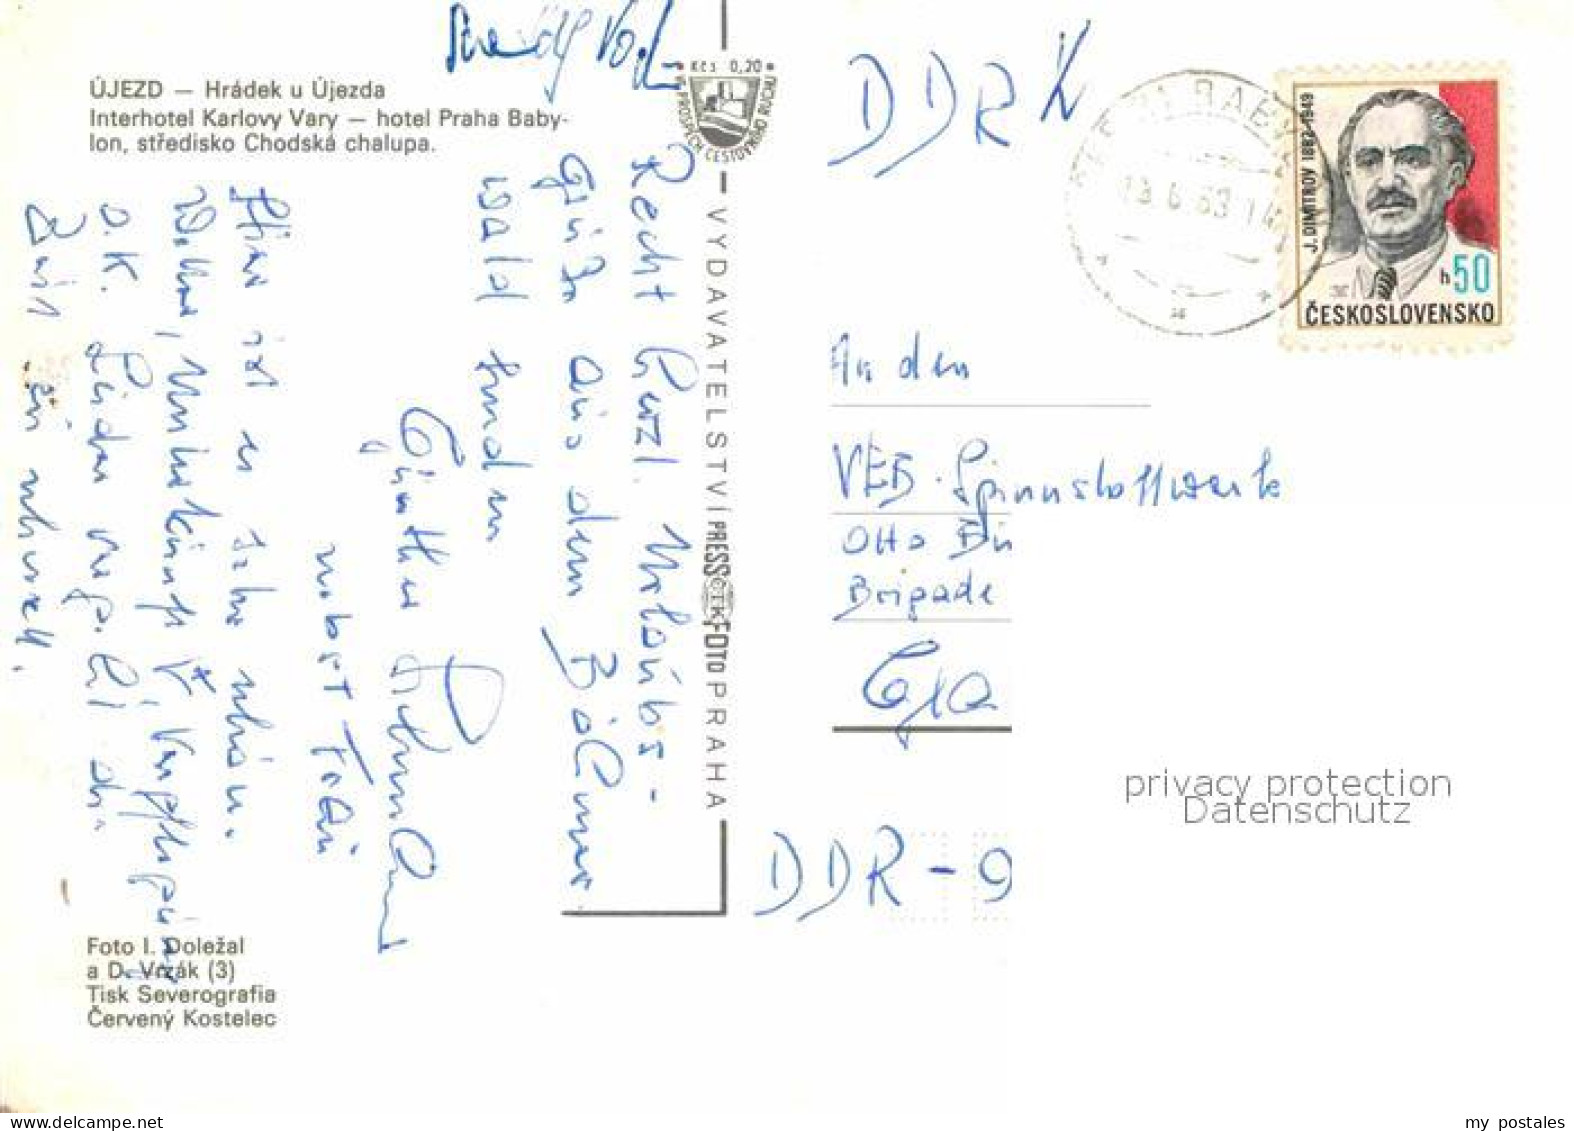 ÚJEZD — Hrádek u Újezda
Interhotel Karlovy Vary — hotel Praha Baby-
lon, středisko Chodská chalupa.
Kčs 0,20
VE PROSPĚCH CESTOVNÍHO RUCHU
VYDAVATELSTVÍ PRESSFOTO PRAHA
ČTK
Recht herzl. Urlaubs-
grüße aus dem Böhmer
wald senden
Günther
nebst Frau
Hier ist es sehr schön.
Wetter, Unterkunft u. Verpflegung
o.K.
Foto I. Doležal
a D. Vrzák (3)
Tisk Severografia
Červený Kostelec
DDR
BABYLON
13.6.83 14
J. DIMITROV 1882-1949
h 50
ČESKOSLOVENSKO
An den
VEB Spinnstoffwerk
Otto
Brigade
DDR - 9
privacy protection
Datenschutz
www.delcampe.net
my postales